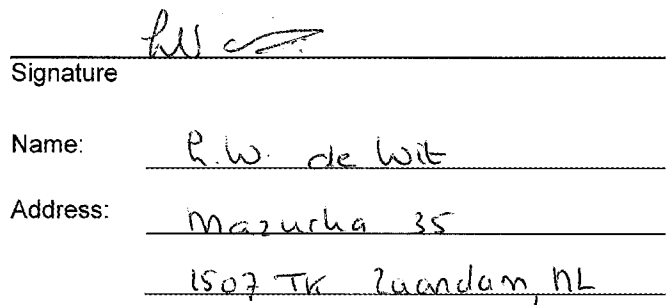 Signature
Name: R.W. de Wit
Address: Mazurka 35
1507 TK Zaandam, NL